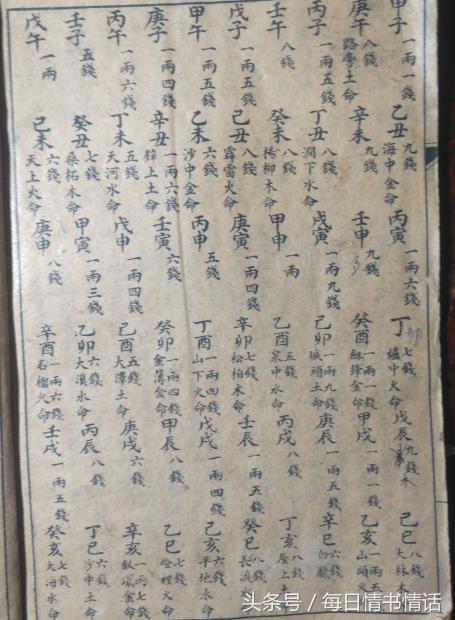 甲子 一兩一錢 乙丑 九錢 海中金命 丙寅 一兩六錢 丁卯 七錢 爐中火命 戊辰 九錢 木 己巳 八錢 大林木
庚午 八錢 路旁土命 辛未 九錢 壬申 九錢 癸酉 一兩一錢 釼鋒金命 甲戌 一兩一錢 乙亥 一兩五 山頭火
丙子 一兩五錢 丁丑 八錢 澗下水命 戊寅 一兩九錢 己卯 一兩九錢 城頭土命 庚辰 一兩五錢 辛巳 六錢 白
壬午 八錢 癸未 八錢 楊柳木命 甲申 一兩 乙酉 五錢 泉中水命 丙戌 八錢 丁亥 八錢 屋上土
戊子 一兩五錢 己丑 八錢 霹雷火命 庚寅 一兩四錢 辛卯 七錢 松柏木命 壬辰 一兩五錢 癸巳 八錢 長流
甲午 一兩五錢 乙未 六錢 沙中金命 丙申 五錢 丁酉 一兩四錢 山下火命 戊戌 一兩四錢 己亥 六錢 平地水命
庚子 一兩四錢 辛丑 一兩六錢 壁上土命 壬寅 六錢 癸卯 一兩四錢 金薄金命 甲辰 八錢 乙巳 七錢 燈裡火命
丙午 一兩六錢 丁未 五錢 天河水命 戊申 一兩四錢 己酉 五錢 大澤土命 庚戌 六錢 辛亥 一兩七錢 釵環金命
壬子 五錢 癸丑 七錢 桑柘木命 甲寅 一兩三錢 乙卯 六錢 大溪水命 丙辰 八錢 丁巳 六錢 沙中土命
戊午 一兩 己未 六錢 天上火命 庚申 八錢 辛酉 一兩六錢 石榴火命 壬戌 一兩五錢 癸亥 七錢 大海水命
头条号 / 每日情书情话